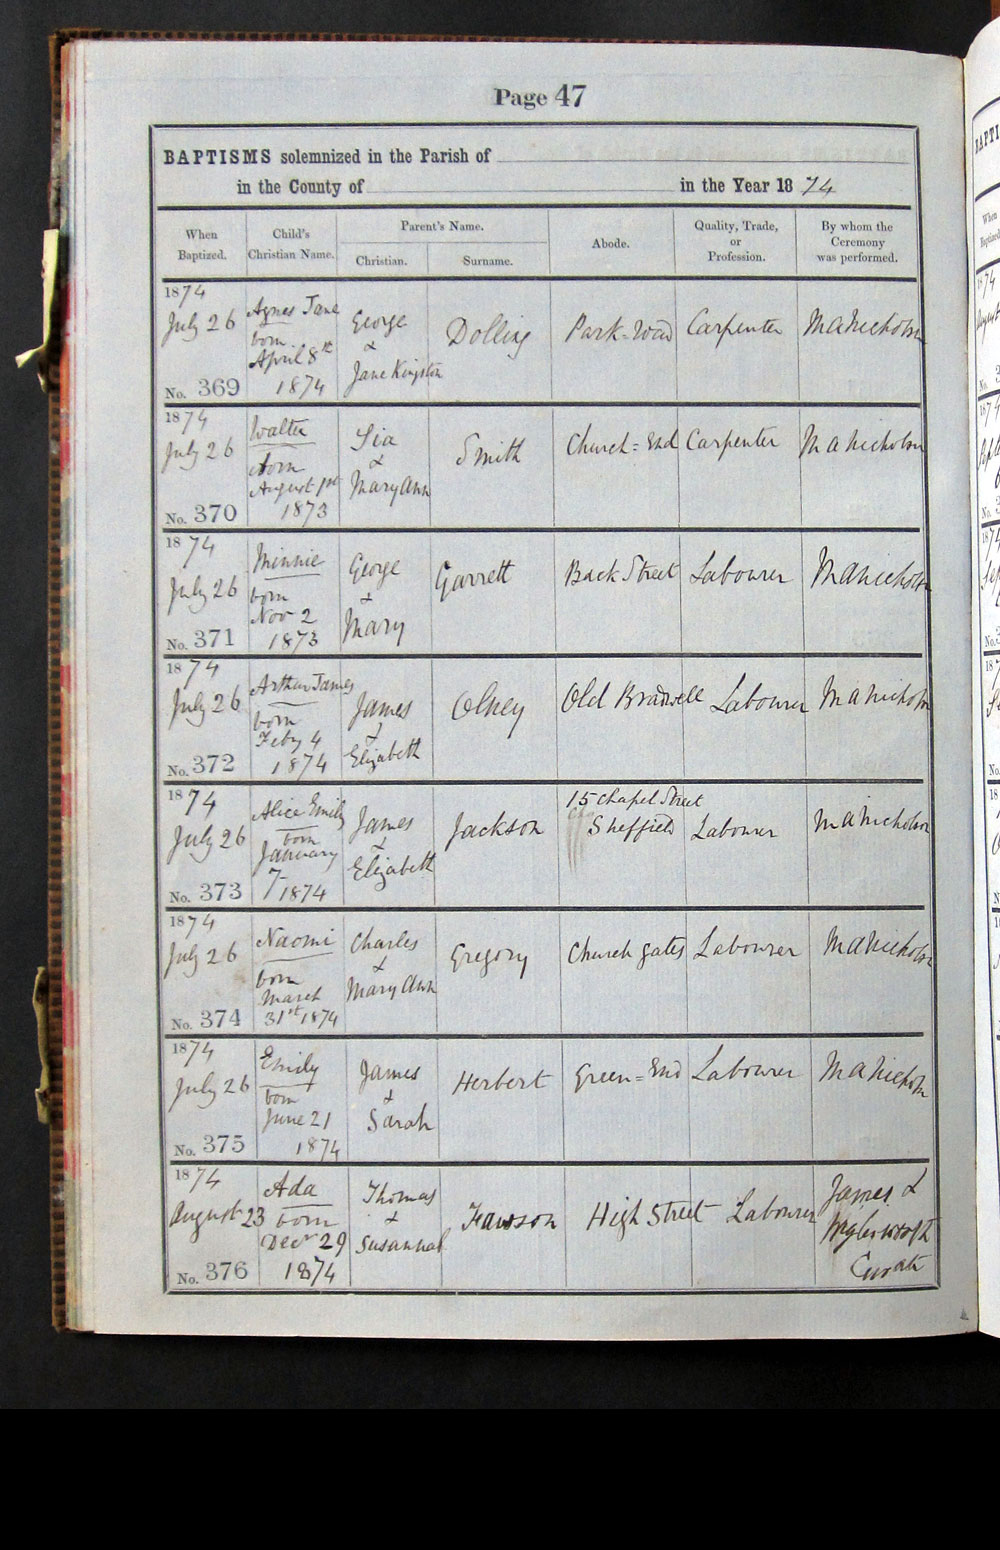 Page 47
BAPTISMS solemnized in the Parish of
in the County of in the Year 18 74
When Baptized.
Child's Christian Name.
Parent's Name.
Christian.
Surname.
Abode.
Quality, Trade, or Profession.
By whom the Ceremony was performed.
1874
July 26
No. 369
Agnes Jane
born
April 8th
1874
George
&
Jane Kingston
Dolling
Park-Road
Carpenter
M A Nicholson
1874
July 26
No. 370
Walter
born
August 1st
1873
&
Mary Ann
Smith
Church=End
Carpenter
M A Nicholson
1874
July 26
No. 371
Minnie
born
Nov 2
1873
George
&
Mary
Garrett
Back Street
Labourer
M A Nicholson
1874
July 26
No. 372
Arthur James
born
Feby 4
1874
James
&
Elizabeth
Olney
Old Bradwell
Labourer
M A Nicholson
1874
July 26
No. 373
Alice Emily
born
January
7- 1874
James
&
Elizabeth
Jackson
15 Chapel Street
Sheffield
Labourer
M A Nicholson
1874
July 26
No. 374
Naomi
born
March
31st 1874
Charles
&
Mary Ann
Gregory
Church gates
Labourer
M A Nicholson
1874
July 26
No. 375
Emily
born
June 21
1874
James
&
Sarah
Herbert
Green=End
Labourer
M A Nicholson
1874
August 23
No. 376
Ada
born
Decr 29
1874
Thomas
&
Susannah
Fawson
High Street
Labourer
James L
Curate